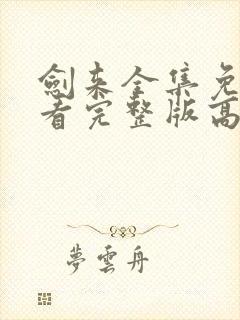 劍来全集免
看完整版高
夢雲舟